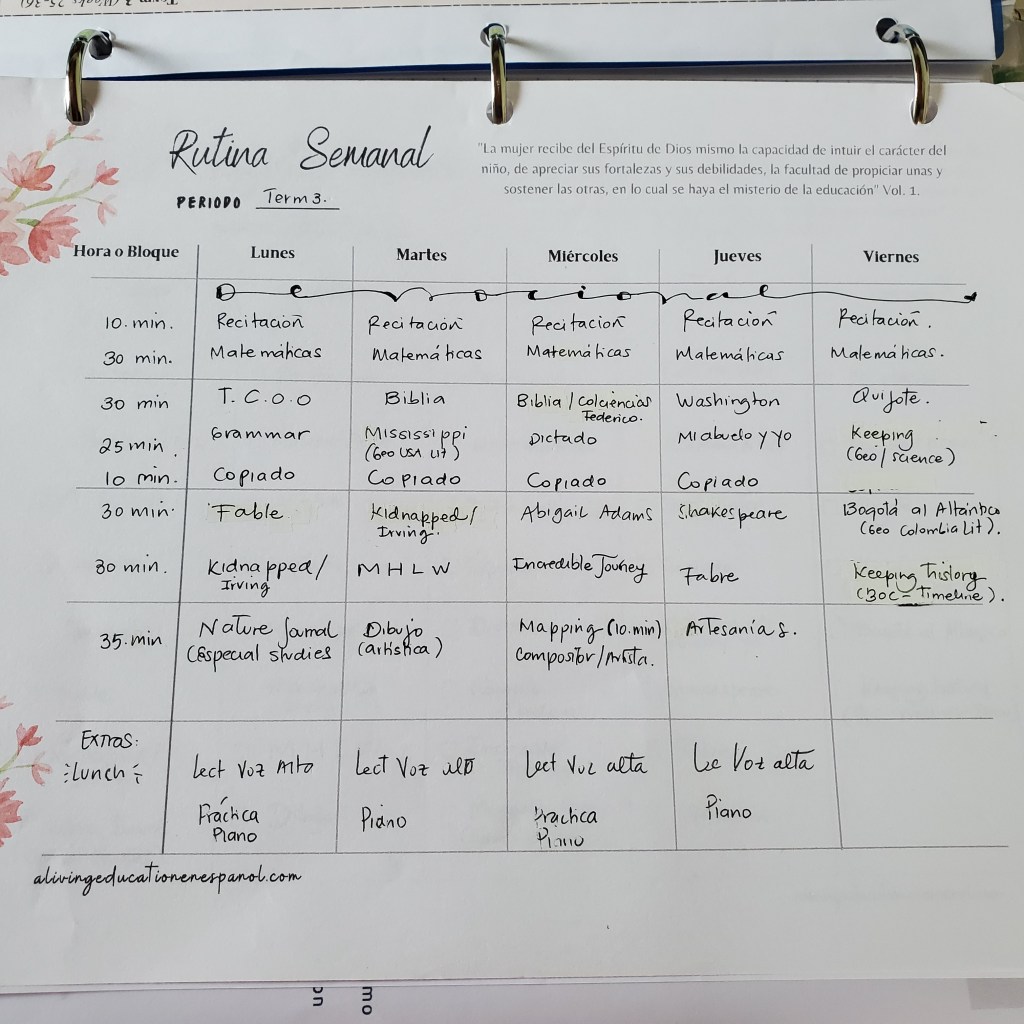 Rutina Semanal
PERIODO Term 3.
"La mujer recibe del Espíritu de Dios mismo la capacidad de intuir el carácter del
niño, de apreciar sus fortalezas y sus debilidades, la facultad de propiciar unas y
sostener las otras, en lo cual se haya el misterio de la educación" Vol. 1.
Hora o Bloque Lunes Martes Miércoles Jueves Viernes
Devocional
10. min. Recitación Recitación Recitación Recitación Recitación.
30 min. Matemáticas Matemáticas Matemáticas Matemáticas Matemáticas.
30 min T. C. O. O Biblia Biblia / Colciencias Washington Quijote.
Federico.
25 min. Grammar Mississippi Dictado Mi abuelo y yo Keeping
(Geo USA Lit) (Geo/science)
10 min. Copiado Copiado Copiado Copiado
30 min. Fable Kidnapped/ Abigail Adams Shakespeare Bogotá al Atlántico
Irving. (Geo Colombia Lit).
30 min. Kidnapped/ M H L W Incredible Journey Fabre Keeping history
Irving (BOC - Timeline).
35. min Nature Journal Dibujo Mapping (10. min) Artesanías.
(Especial studies (artistica) Compositor/Artista.
Extras:
Lunch Lect Voz Alto Lect Voz Lect Voz alta Lec Voz alta
Práctica Piano Práctica Piano
Piano Piano
alivingeducationenespanol.com